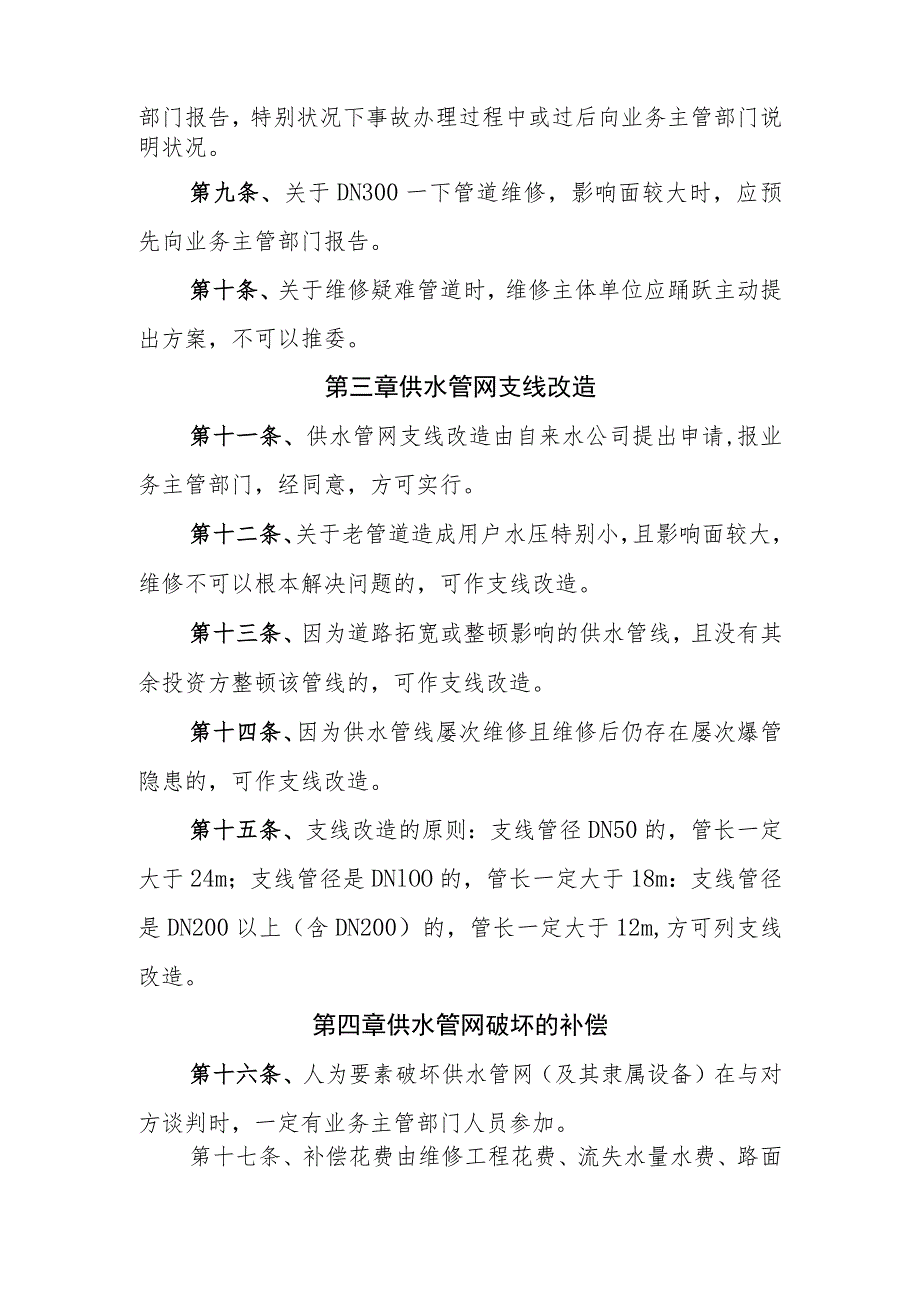 部门报告，特别状况下事故办理过程中或过后向业务主管部门说
明状况。
第九条、关于DN300一下管道维修，影响面较大时，应预
先向业务主管部门报告。
第十条、关于维修疑难管道时，维修主体单位应踊跃主动提
出方案，不可以推委。
第三章供水管网支线改造
第十一条、供水管网支线改造由自来水公司提出申请,报业
务主管部门，经同意，方可实行。
第十二条、关于老管道造成用户水压特别小，且影响面较大，
维修不可以根本解决问题的，可作支线改造。
第十三条、因为道路拓宽或整顿影响的供水管线，且没有其
余投资方整顿该管线的，可作支线改造。
第十四条、因为供水管线屡次维修且维修后仍存在屡次爆管
隐患的，可作支线改造。
第十五条、支线改造的原则：支线管径DN50的，管长一定
大于24m；支线管径是DNlOO的，管长一定大于18m：支线管径
是DN200以上（含DN200）的，管长一定大于12m,方可列支线
改造。
第四章供水管网破坏的补偿
第十六条、人为要素破坏供水管网（及其隶属设备）在与对
方谈判时，一定有业务主管部门人员参加。
第十七条、补偿花费由维修工程花费、流失水量水费、路面